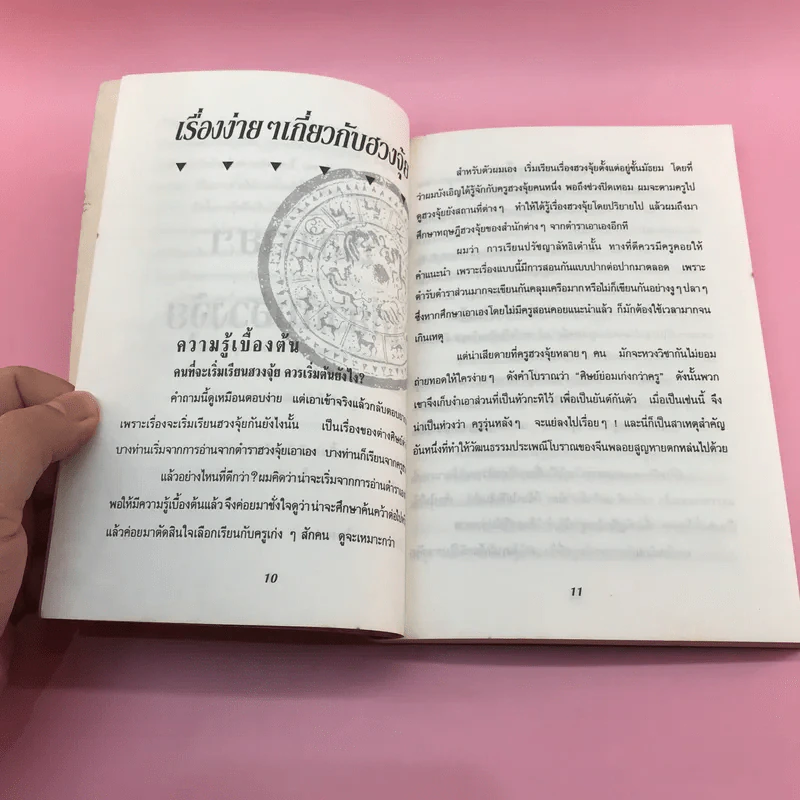 เรื่องง่าย ๆ เกี่ยวกับฮวงจุ้ย
ความรู้เบื้องต้น
คนที่จะเริ่มเรียนฮวงจุ้ย ควรเริ่มต้นยังไง?
คำถามนี้ดูเหมือนตอบง่าย แต่เอาเข้าจริงแล้วกลับตอบยาก
เพราะเรื่องจะเริ่มเรียนฮวงจุ้ยกันยังไงนั้น เป็นเรื่องของต่างศิษย์
บางท่านเริ่มจากการอ่านจากตำราฮวงจุ้ยเอาเอง บางท่านก็เรียนจากครู
แล้วอย่างไหนที่ดีกว่า? ผมคิดว่าน่าจะเริ่มจากการอ่านตำรา
พอให้มีความรู้เบื้องต้นแล้ว จึงค่อยมาชั่งใจดูว่าน่าจะศึกษาค้นคว้าต่อไป
แล้วค่อยมาตัดสินใจเลือกเรียนกับครูเก่ง ๆ สักคน ดูจะเหมาะกว่า
10
สำหรับตัวผมเอง เริ่มเรียนเรื่องฮวงจุ้ยตั้งแต่อยู่ชั้นมัธยม โดยที่
ว่าผมบังเอิญได้รู้จักกับครูฮวงจุ้ยคนหนึ่ง พอถึงช่วงปิดเทอม ผมจะตามครูไป
ดูฮวงจุ้ยยังสถานที่ต่าง ๆ ทำให้ได้รู้เรื่องฮวงจุ้ยโดยปริยายไป แล้วผมถึงมา
ศึกษาทฤษฎีฮวงจุ้ยของสำนักต่าง ๆ จากตำราเอาเองอีกที
ผมว่า การเรียนปรัชญาลัทธิเต๋านั้น ทางที่ดีควรมีครูคอยให้
คำแนะนำ เพราะเรื่องแบบนี้มีการสอนกันแบบปากต่อปากมาตลอด เพราะ
ตำรับตำราส่วนมากจะเขียนกันคลุมเครือมากหรือไม่ก็เขียนกันอย่างงู ๆ ปลา ๆ
ซึ่งหากศึกษาเอาเองโดยไม่มีครูสอนคอยแนะนำแล้ว ก็มักต้องใช้เวลามากจน
เกินเหตุ
แต่น่าเสียดายที่ครูฮวงจุ้ยหลาย ๆ คน มักจะหวงวิชากันไม่ยอม
ถ่ายทอดให้ใครง่าย ๆ ดังคำโบราณว่า “ศิษย์ย่อมเก่งกว่าครู” ดังนั้นพวก
เขาจึงเก็บงำเอาส่วนที่เป็นหัวกะทิไว้ เพื่อเป็นยันต์กันตัว เมื่อเป็นเช่นนี้ จึง
น่าเป็นห่วงว่า ครูรุ่นหลัง ๆ จะแย่ลงไปเรื่อย ๆ ! และนี่ก็เป็นสาเหตุสำคัญ
อันหนึ่งที่ทำให้วัฒนธรรมประเพณีโบราณของจีนพลอยสูญหายตกหล่นไปด้วย
11